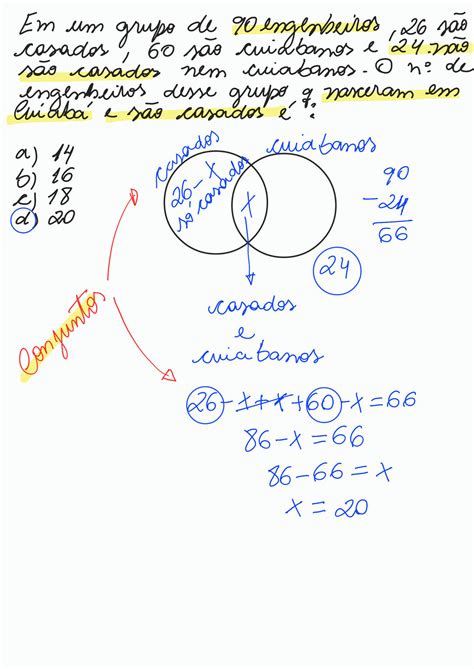 Em um grupo de 90 engenheiros, 26 são
casados, 60 são cuiabanos e 24 não
são casados nem cuiabanos. O nº de
engenheiros desse grupo q nasceram em
Cuiabá e são casados é?
a) 14
b) 16
c) 18
d) 20
casados
cuiabanos
26-x
só casados
x
24
90
-24
66
casados
e
cuiabanos
Conjuntos
26-x+x+60-x=66
86-x=66
86-66=x
x=20